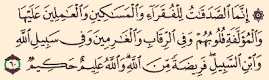 ۞ إِنَّمَا ٱلصَّدَقَٰتُ لِلۡفُقَرَآءِ وَٱلۡمَسَٰكِينِ وَٱلۡعَٰمِلِينَ عَلَيۡهَا
وَٱلۡمُؤَلَّفَةِ قُلُوبُهُمۡ وَفِي ٱلرِّقَابِ وَٱلۡغَٰرِمِينَ وَفِي سَبِيلِ ٱللَّهِ
وَٱبۡنِ ٱلسَّبِيلِۖ فَرِيضَةٗ مِّنَ ٱللَّهِۗ وَٱللَّهُ عَلِيمٌ حَكِيمٞ ٦٠